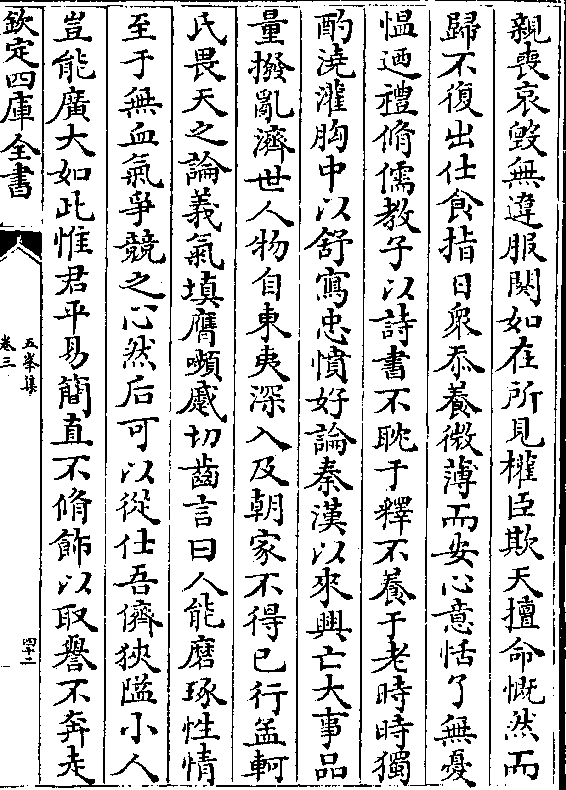 親喪哀毀無違服闋如在所見權臣欺天擅命慨然而
歸不復出仕食指日衆忝養微薄而安心意恬了無憂
愠廼禮脩儒教子以詩書不耽于釋不養于老時時獨
酌澆灌胸中以舒寫忠憤好論秦漢以來興亡大事品
量撥亂濟世人物自東夷深入及朝家不得已行孟軻
氏畏天之論義氣填膺嚬蹙切齒言曰人能磨琢性情
至于無血氣爭競之心然后可以從仕吾儕狹隘小人
豈能廣大如此惟君平易簡直不脩飾以取譽不奔走
欽定四庫全書
五峯集
卷三
四十二